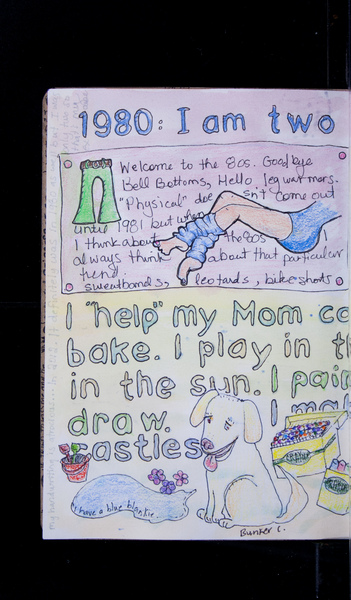 1980: I am two
Welcome to the 80s. Goodbye
Bell Bottoms, Hello, leg warmers.
"Physical" doesn't come out
until 1981 but when
I think about the 80s
always think about that particular
trend.
sweatbands, leotards, bike shorts
I "help" my Mom co
bake. I play in th
in the sun. I pain
draw. I mak
castles
I have a blue blankie.
Bunker C.